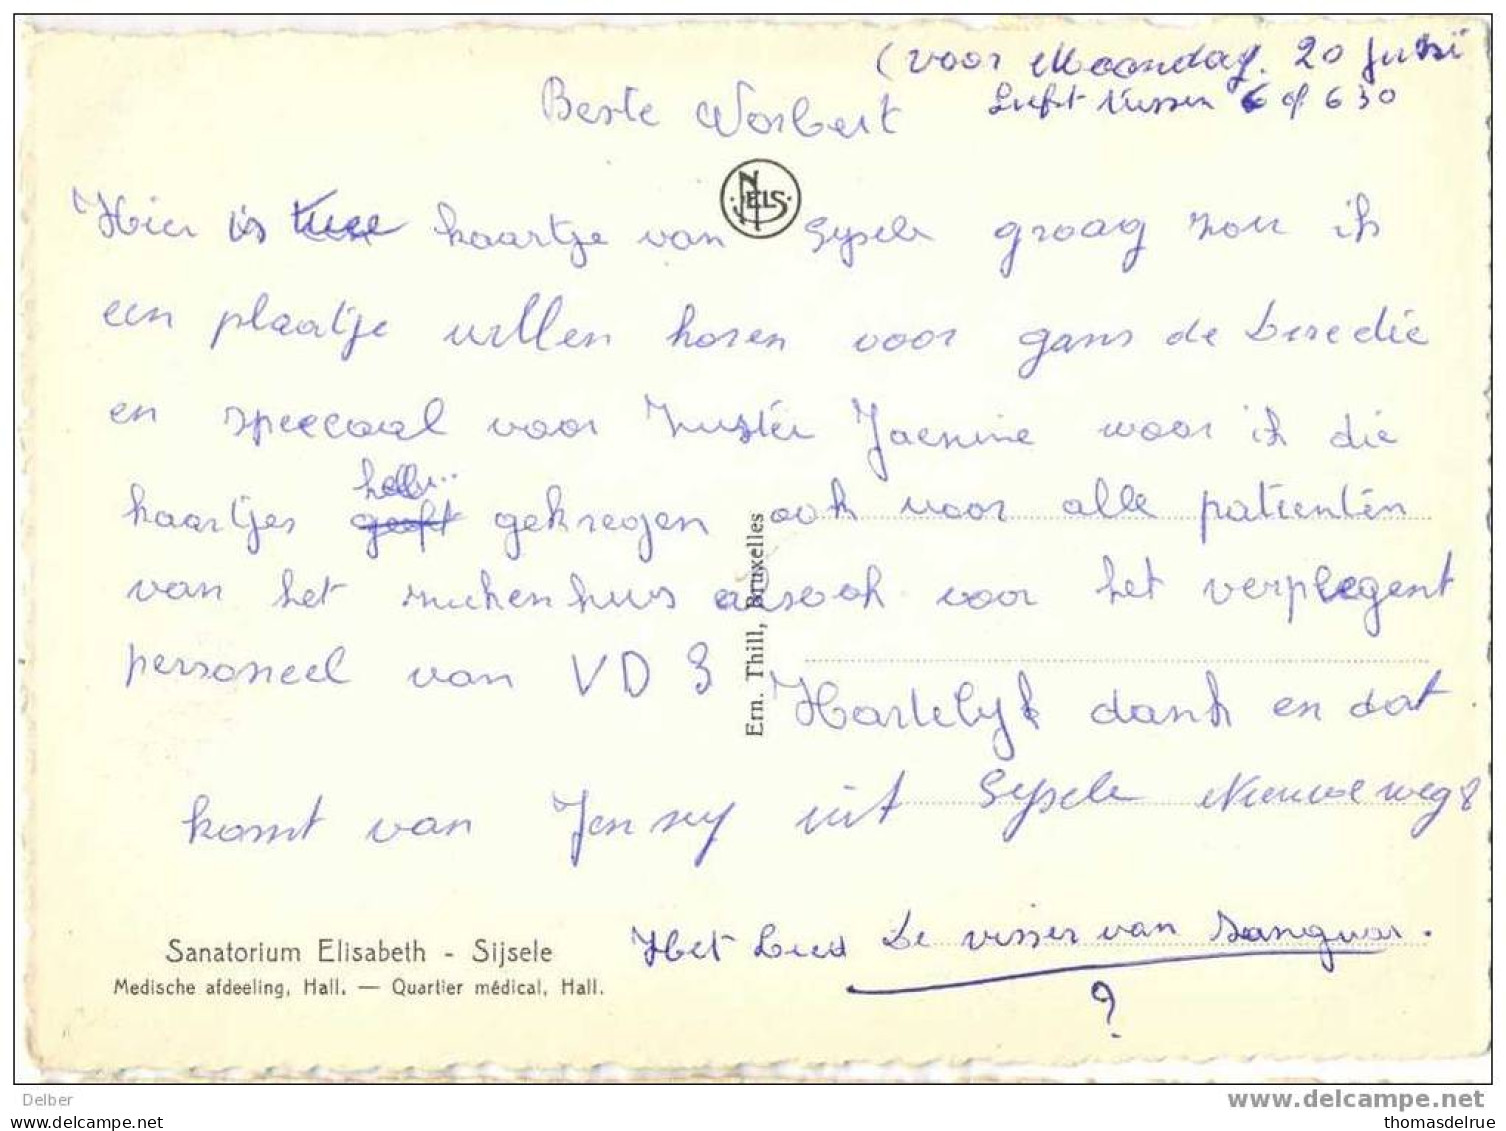 (voor Maandag. 20 Juni
Liefst tussen 6 of 6 30
Beste Norbert
NELS
Hier is twee kaartje van Sysele graag zou ik
een plaatje willen horen voor gans de
en speciaal voor Zuster Jaenine waar ik die
kaartjes hebben gekregen ook voor alle patienten
van het ziekenhuis alsook voor het verplegent
personeel van VD 3
Hartelijk dank en dat
komt van Jenny uit Sysele Nieuweweg 8
Het Lied De visser van
?
Sanatorium Elisabeth - Sijsele
Medische afdeeling, Hall. — Quartier médical, Hall.
Ern. Thill, Bruxelles
Delber
www.delcampe.net
www.delcampe.net
thomasdelrue